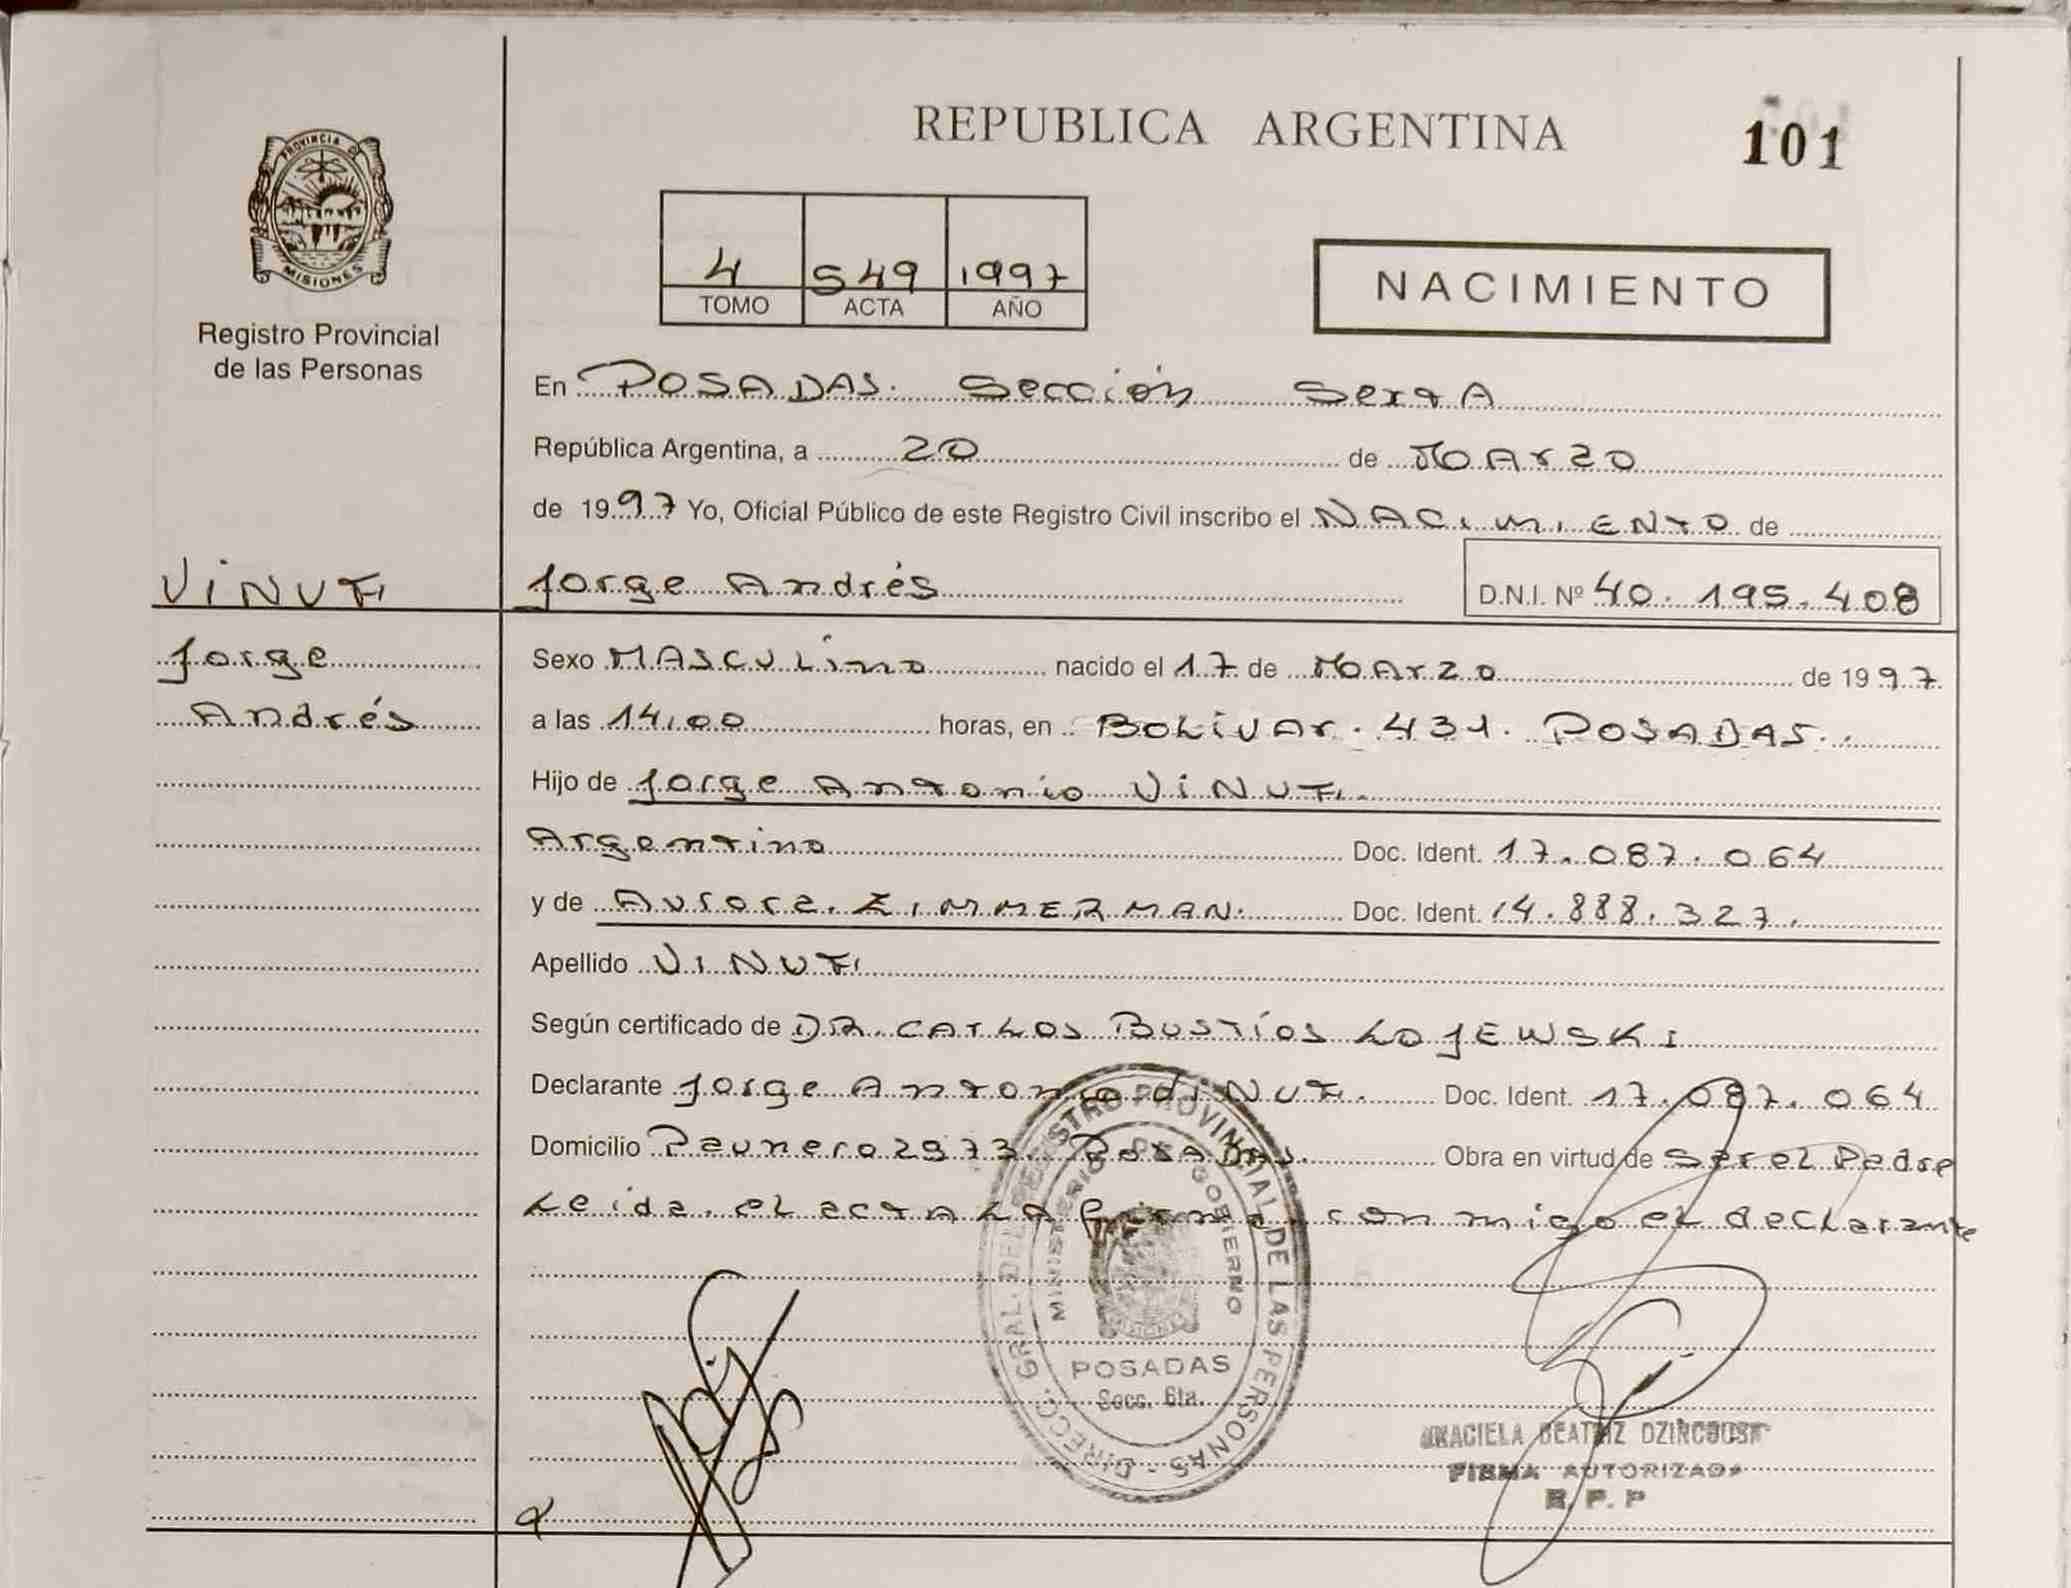 REPUBLICA ARGENTINA
101
PROVINCIA DE
MISIONES
Registro Provincial
de las Personas
4 549 1997
TOMO ACTA AÑO
NACIMIENTO
En POSADAS. Sección Sexta
República Argentina, a 20 de Marzo
de 1997 Yo, Oficial Público de este Registro Civil inscribo el NACIMIENTO de
Jorge Andrés
D.N.I. Nº 40.195.408
VINUTI
Jorge
Andrés
Sexo MASCULino nacido el 17 de Marzo de 1997
a las 14,00 horas, en BOLIVAR. 431. POSADAS.
Hijo de Jorge Antonio VINUTI.
Argentino Doc. Ident. 17.087.064
y de Aurora. ZIMMERMAN. Doc. Ident. 14.888.327.
Apellido VINUTI
Según certificado de DR. CARLOS BUSTÍOS LOJEWSKI
Declarante Jorge Antonio VINUTI. Doc. Ident. 17.087.064
Domicilio Paunero 2973. POSADAS. Obra en virtud de ser el Padre
Leida. el acta la firma. con migo el declarante
DIRECC. GRAL. DEL REGISTRO PROVINCIAL DE LAS PERSONAS -
MINISTERIO DE GOBIERNO
POSADAS
Secc. 6ta.
GRACIELA BEATRIZ
FIRMA AUTORIZADA
R. P. P